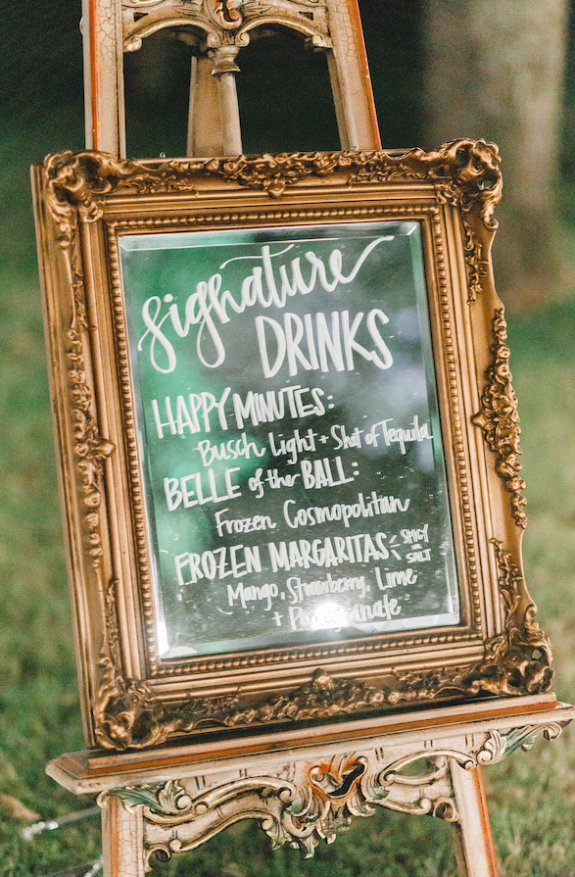 Signature
DRINKS
HAPPY MINUTES:
Busch Light + Shot of Tequila
BELLE of the BALL:
Frozen Cosmopolitan
FROZEN MARGARITAS
SPICY
SALT
Mango, Strawberry, Lime
+